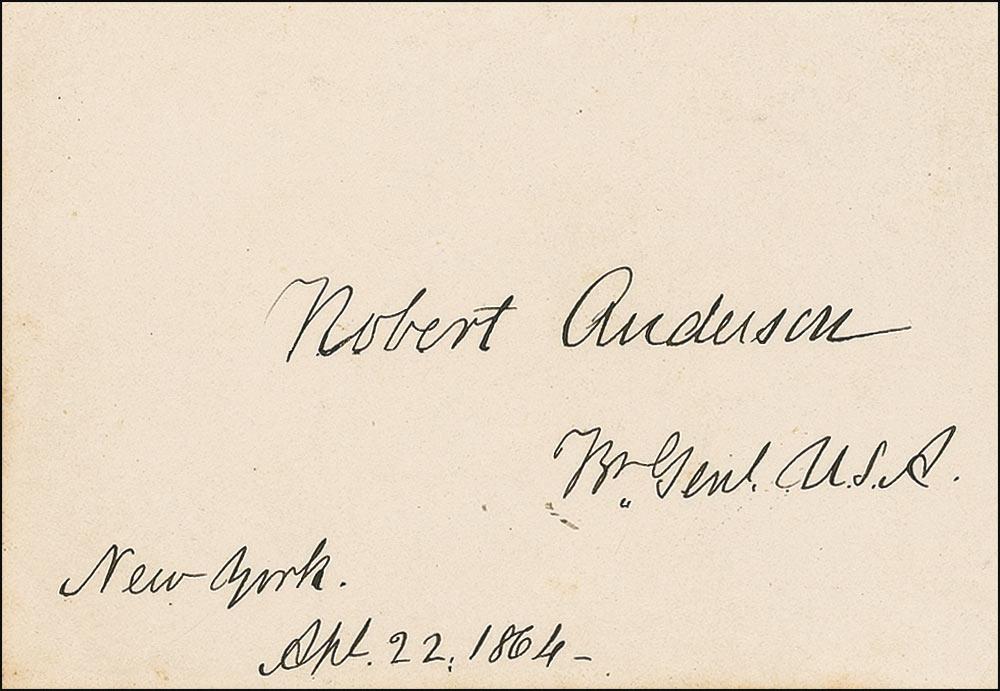 Robert Anderson
Br. Genl. U.S.A.
New York.
Apl. 22, 1864-